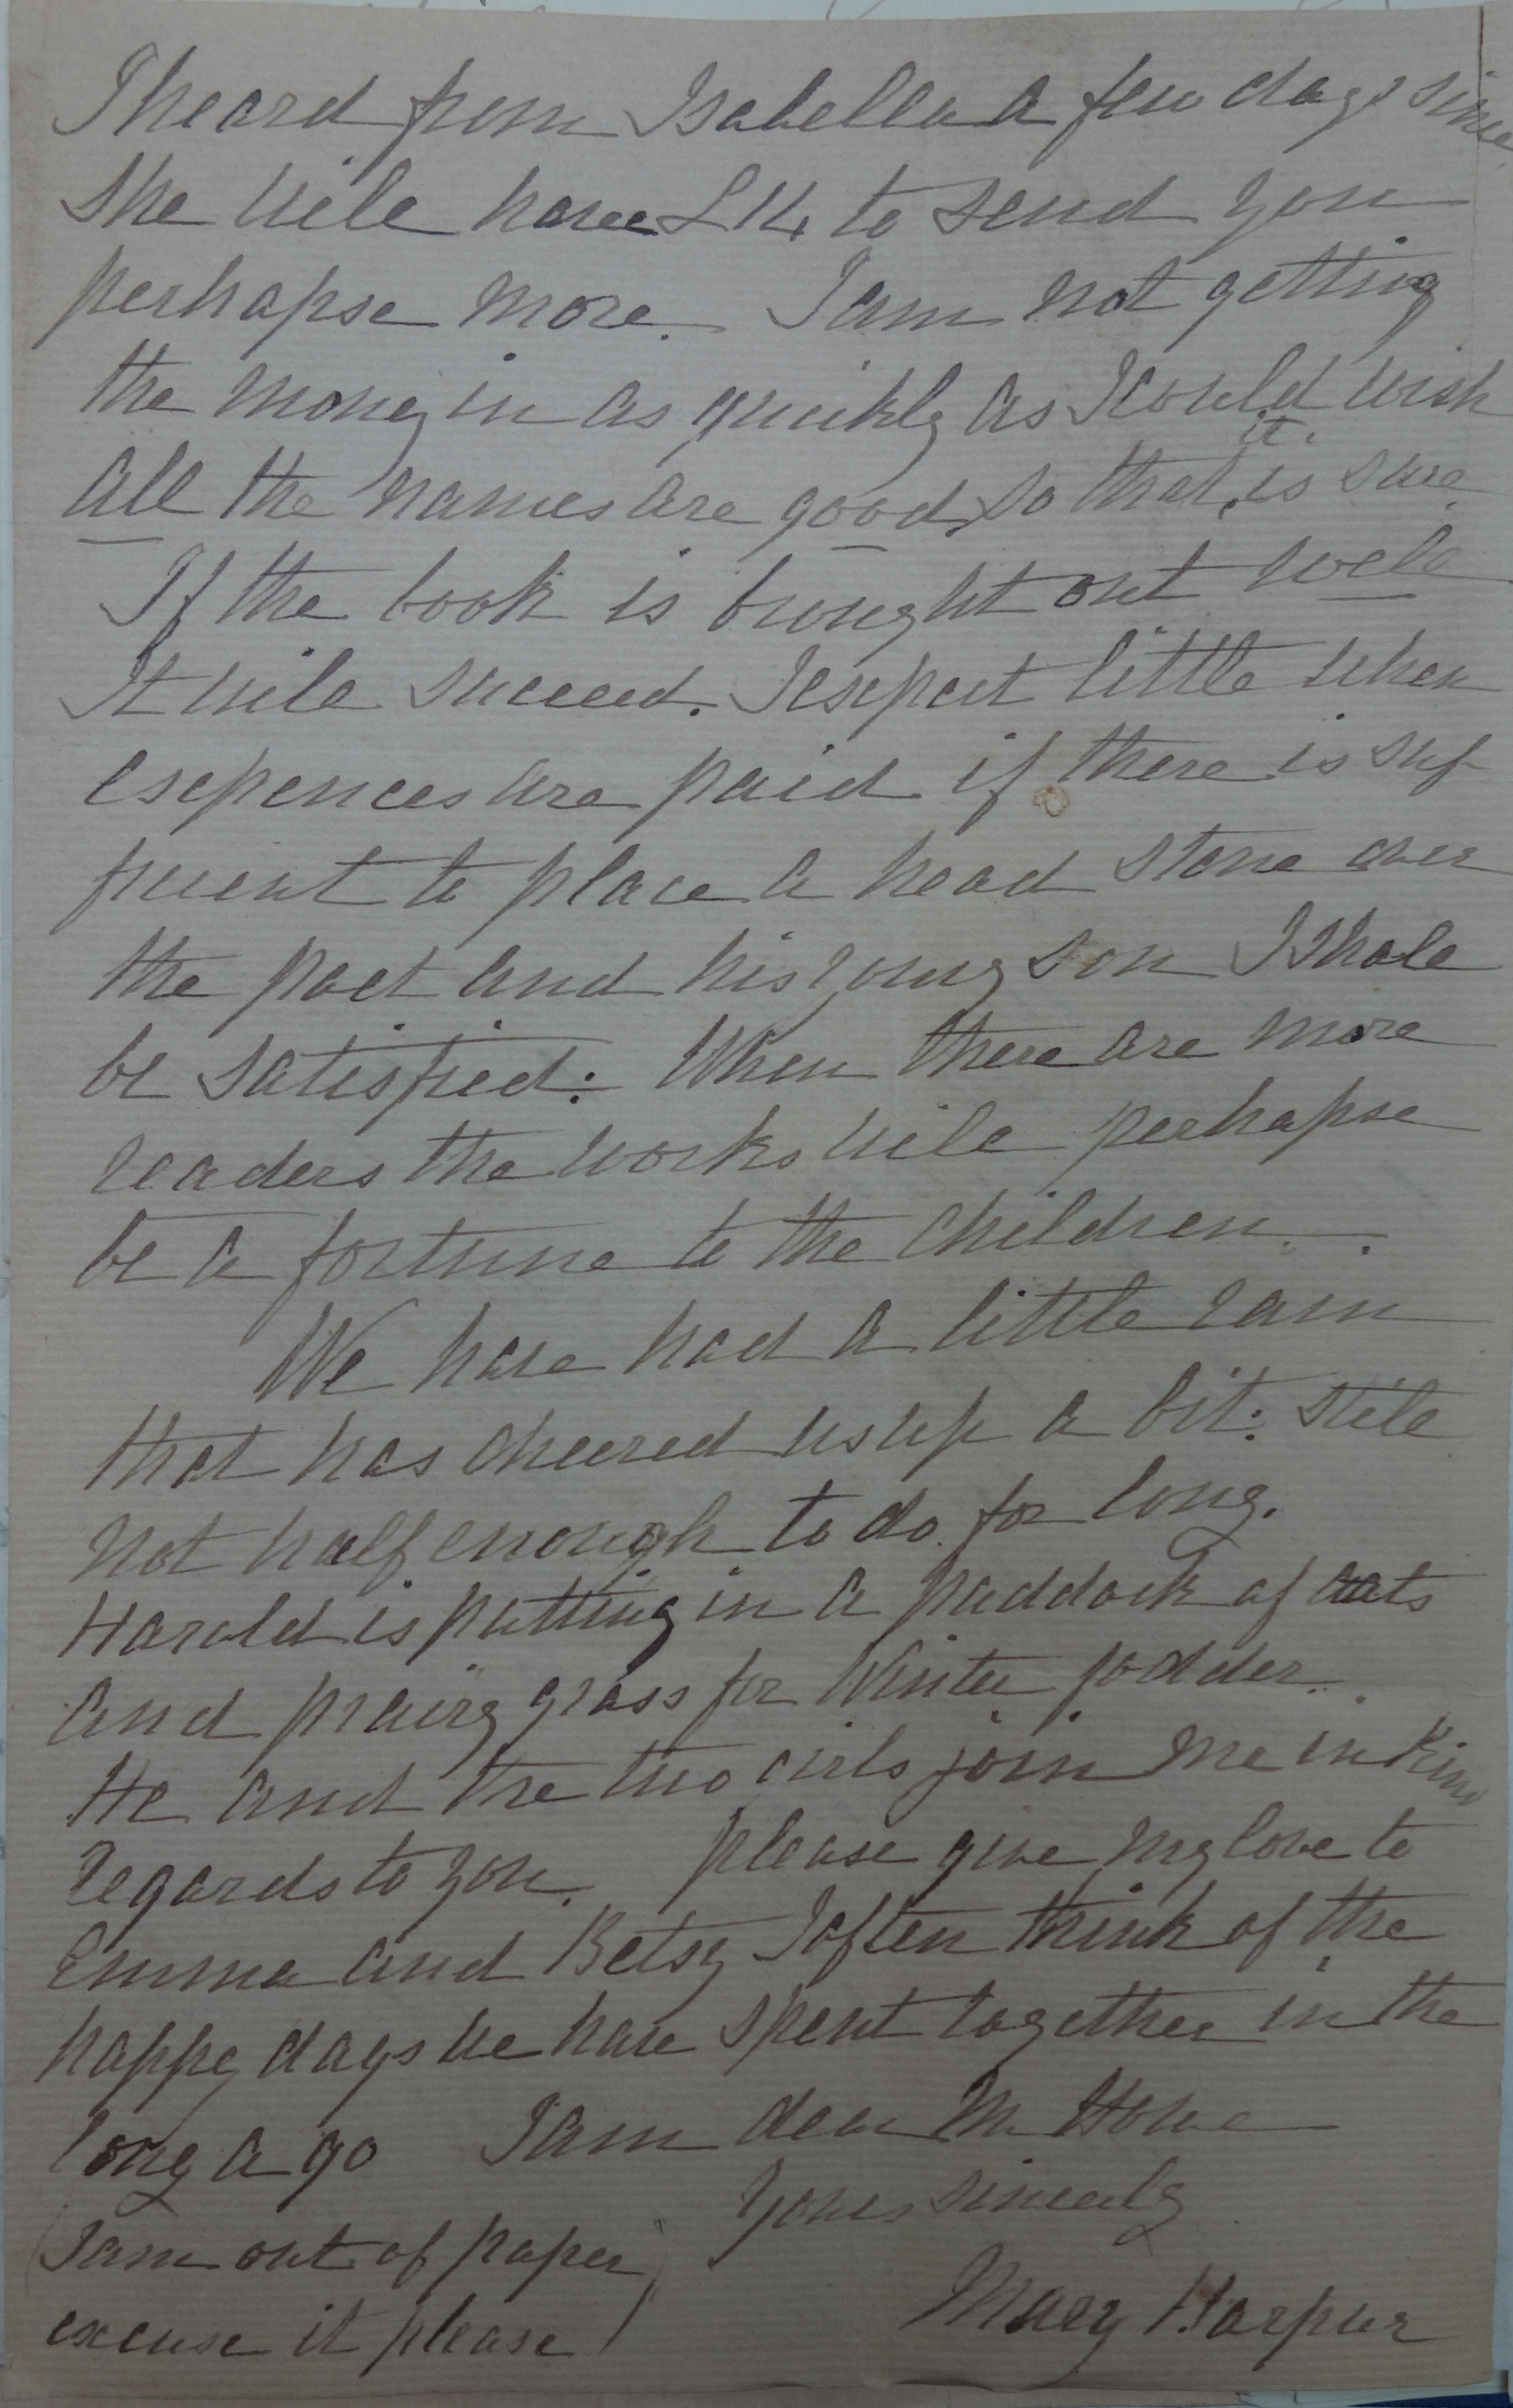 I heard from Isabella a few days since
She will have £14 to send you
perhapse more. I am not getting
the money in as quickly as I could wish
All the names are good, so that it is sure.
If the book is brought out well
It will succeed. I expect little when
expences are paid if there is suf-
ficient to place a head stone over
the poet and his young son I shall
be satisfied: When there are more
readers the works will perhapse
be a fortune to the children.
We have had a little rain
that has cheered us up a bit: still
not half enough to do for long.
Harold is putting in a paddock of oats
and prairy grass for Winter fodder.
He and the two girls join me in kind
regards to you. please give my love to
Emma and Betsy I often think of the
happy days we have spent together in the
long a go I am dear Mr Howe
Yours sincerly
(I am out of paper
excuse it please)
Mary Harpur